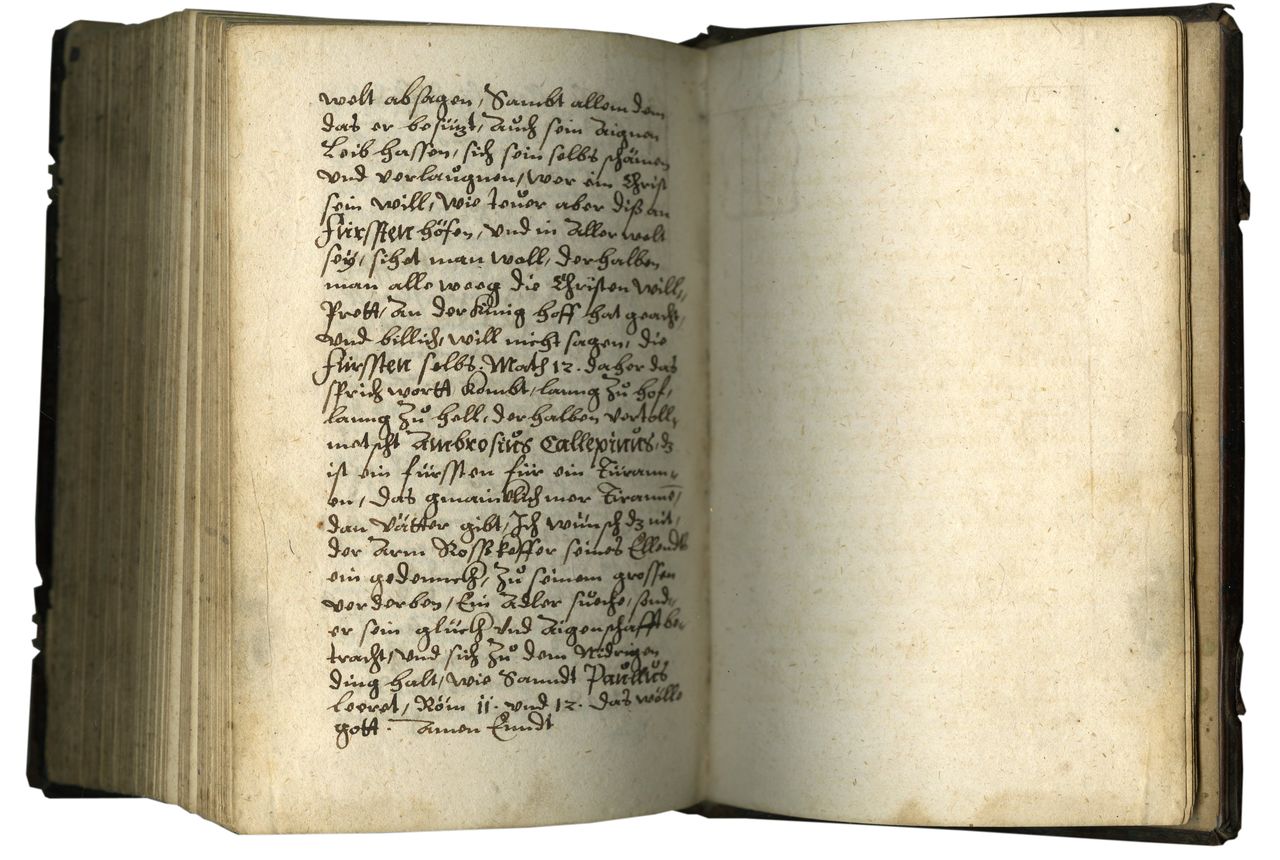 welt absagen, Sambt allem dem
das er besützt, Auch sein Aignen
Leib hassen, sich sein selbs schämen
vnd verlaugnen, wer ein Christ
sein will, wie teuer aber diß an
Fürssten höfen, vnd in Aller welt
sey, sihet man woll, derhalben
man alle weeg die Christen will,,
Prett, An der Künig hoff hat geacht,
vnd billich, will nicht sagen, die
Fürssten selbs. Math 12. daher das
sprich wortt Kombt, lanng Zu hof,
lanng Zu hell, derhalben vertoll,,
metscht Ambrosius Callepinus, dz
ist ein fürssten für ein Türann,,
en, das gmainklich mer Tiranne,
dan Vätter gibt, Ich wünsch dz nit,
der Arm Rosskeffer seines Ellendts
ein gedennckh, Zu seinem grossen
verderben, Ein Adler sueche, sond,,
er sein glückh vnd Aigenschafft be,,
tracht, vnd sich Zu dem Nidrigen
ding halt, wie Sanndt Paullus
leeret, Röm 11. vnd 12. das wölle
gott. Amen Enndt